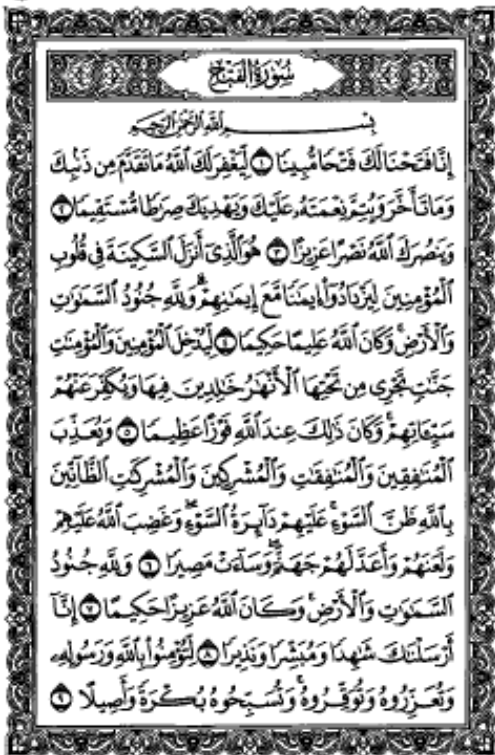 سُورَةُ الفَتْحِ
بِسْمِ اللَّهِ الرَّحْمَٰنِ الرَّحِيمِ
إِنَّا فَتَحْنَا لَكَ فَتْحًا مُّبِينًا ١ لِّيَغْفِرَ لَكَ اللَّهُ مَا تَقَدَّمَ مِن ذَنۢبِكَ
وَمَا تَأَخَّرَ وَيُتِمَّ نِعْمَتَهُۥ عَلَيْكَ وَيَهْدِيَكَ صِرَٰطًا مُّسْتَقِيمًا ٢
وَيَنصُرَكَ اللَّهُ نَصْرًا عَزِيزًا ٣ هُوَ الَّذِىٓ أَنزَلَ السَّكِينَةَ فِى قُلُوبِ
الْمُؤْمِنِينَ لِيَزْدَادُوٓا۟ إِيمَٰنًا مَّعَ إِيمَٰنِهِمْ ۗ وَلِلَّهِ جُنُودُ السَّمَٰوَٰتِ
وَالْأَرْضِ ۚ وَكَانَ اللَّهُ عَلِيمًا حَكِيمًا ٤ لِّيُدْخِلَ الْمُؤْمِنِينَ وَالْمُؤْمِنَٰتِ
جَنَّٰتٍ تَجْرِى مِن تَحْتِهَا الْأَنْهَٰرُ خَٰلِدِينَ فِيهَا وَيُكَفِّرَ عَنْهُمْ
سَيِّـَٔاتِهِمْ ۚ وَكَانَ ذَٰلِكَ عِندَ اللَّهِ فَوْزًا عَظِيمًا ٥ وَيُعَذِّبَ
الْمُنَٰفِقِينَ وَالْمُنَٰفِقَٰتِ وَالْمُشْرِكِينَ وَالْمُشْرِكَٰتِ الظَّآنِّينَ
بِاللَّهِ ظَنَّ السَّوْءِ ۚ عَلَيْهِمْ دَآئِرَةُ السَّوْءِ ۖ وَغَضِبَ اللَّهُ عَلَيْهِمْ
وَلَعَنَهُمْ وَأَعَدَّ لَهُمْ جَهَنَّمَ ۖ وَسَآءَتْ مَصِيرًا ٦ وَلِلَّهِ جُنُودُ
السَّمَٰوَٰتِ وَالْأَرْضِ ۚ وَكَانَ اللَّهُ عَزِيزًا حَكِيمًا ٧ إِنَّآ
أَرْسَلْنَٰكَ شَٰهِدًا وَمُبَشِّرًا وَنَذِيرًا ٨ لِّتُؤْمِنُوا۟ بِاللَّهِ وَرَسُولِهِۦ
وَتُعَزِّرُوهُ وَتُوَقِّرُوهُ ۚ وَتُسَبِّحُوهُ بُكْرَةً وَأَصِيلًا ٩